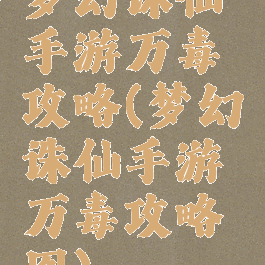 梦幻诛仙
手游万毒
攻略(梦幻
诛仙手游
万毒攻略
图)